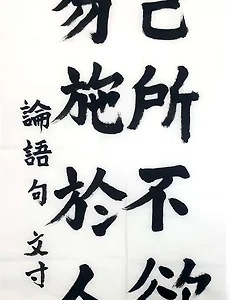 己所不欲
勿施於人
論語句 文寸